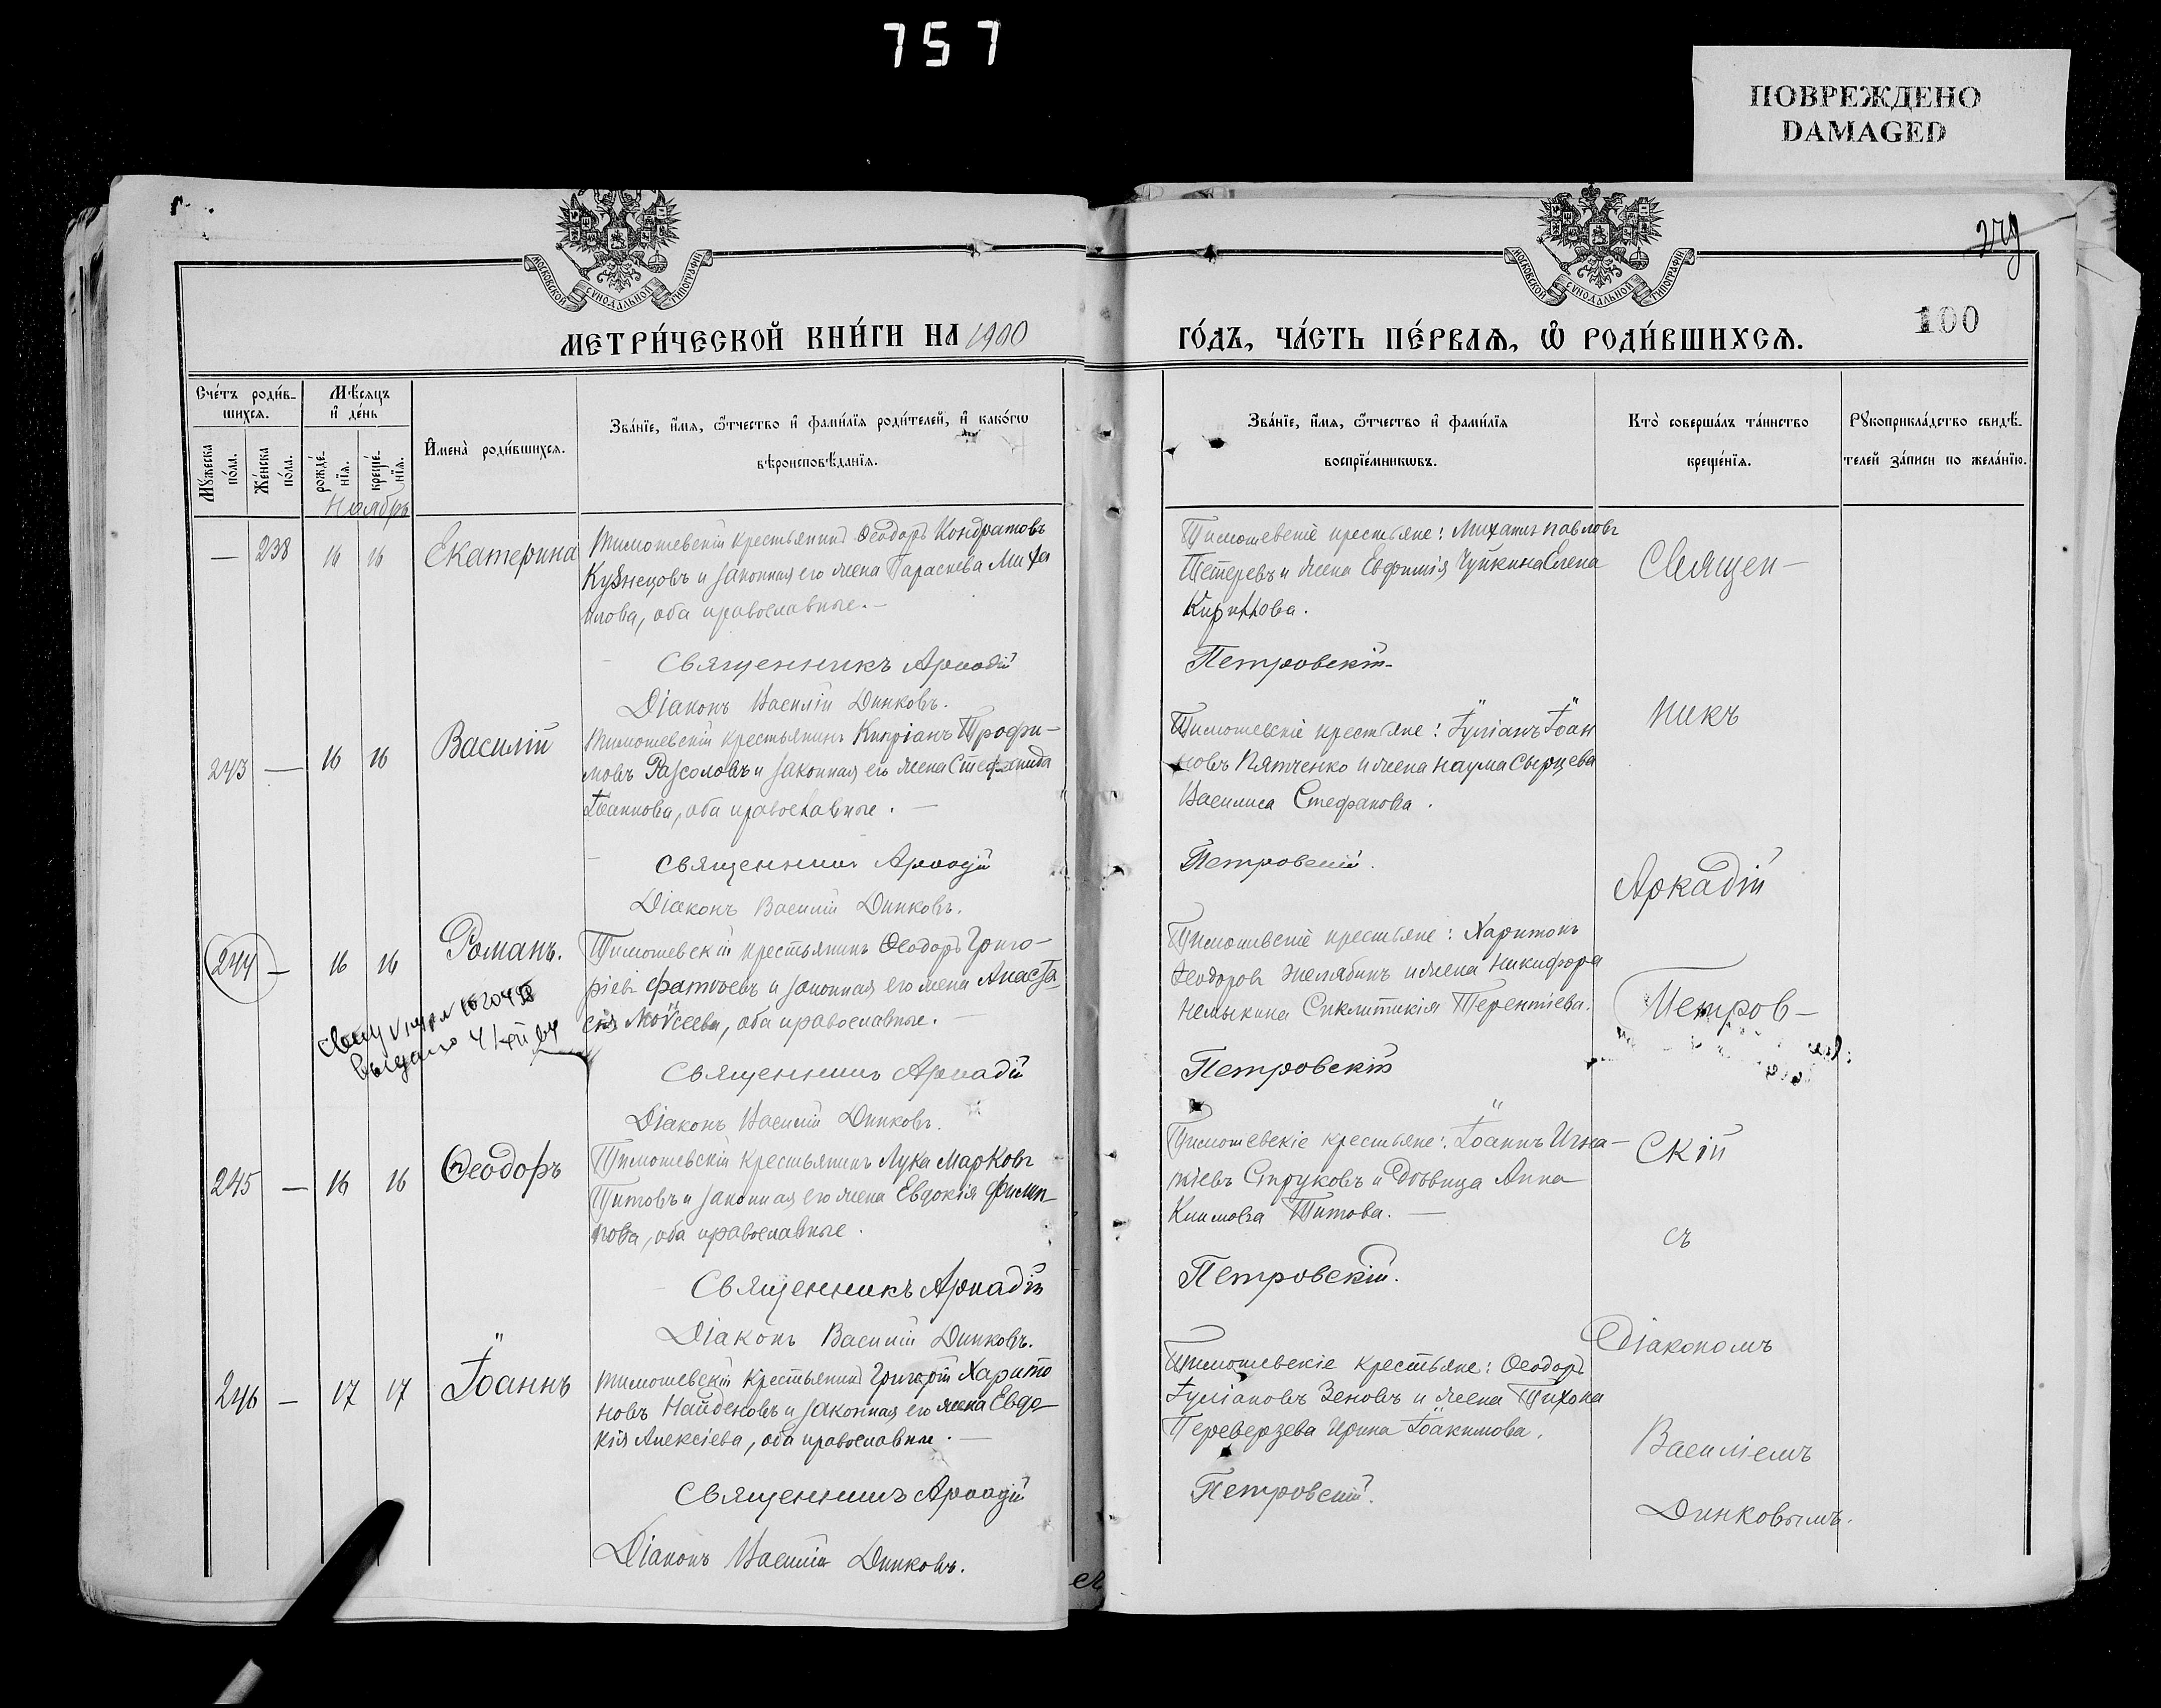 757
ПОВРЕЖДЕНО
DAMAGED
МОСКОВСКОЙ СУНОДАЛЬНОЙ ТИПОГРАФІИ
МОСКОВСКОЙ СУНОДАЛЬНОЙ ТИПОГРАФІИ
100
МЕТРИ́ЧЕСКОЙ КНИ́ГИ НА 1900
ГО́ДЪ, ЧА́СТЬ ПЕ́РВАѦ, Ѡ҆ РОДИ́ВШИХСѦ.
Сче́тъ роди́в-
шихсѧ.
Мѣ́сѧцъ
и҆ де́нь
Мꙋ́жеска
по́ла.
Же́нска
по́ла.
рожде́-
нїѧ.
креще́-
нїѧ.
И҆мена̀ роди́вшихсѧ.
Зва́нїе, и҆́мѧ, ѿтчество и҆ фами́лїѧ роди́телей, и҆ како́гѡ
вѣроисповѣ́данїѧ.
Зва́нїе, и҆́мѧ, ѿтчество и҆ фами́лїѧ
воспрїе́мникѡвъ.
Кто̀ соверша́лъ та́инство
креще́нїѧ.
Рꙋкоприкла́дство свидѣ́-
телей за́писи по жела́нїю.
Ноябрь
— 238 16 16 Екатерина
Тимошевскій крестьянинъ Ѳеодоръ Кондратовъ
Кузнецовъ и законная его жена Параскева Миха
илова, оба православные. —
Священникъ Аркадій
Діаконъ Василій Динковъ.
Тимошевскіе крестьяне: Михаилъ Павловъ
Тетеревъ и жена Евфимія Чупкина Елена
Кириллова.
Петровскій
243 — 16 16 Василій
Тимошевскій крестьянинъ Кипріанъ Трофи-
мовъ Разсоловъ и законная его жена Стефанида
Іоаннова, оба православные. —
Священникъ Аркадій
Діаконъ Василій Динковъ.
Тимошевскіе крестьяне: Іуліанъ Іоан
новъ Пятченко и жена Наума Сырцева
Василиса Стефанова.
Петровскій.
244 — 16 16 Романъ.
Тимошевскій крестьянинъ Ѳеодоръ Григо-
ріевъ Фатѣевъ и законная его жена Анаста
сія Моѵсеева, оба православные. —
Священникъ Аркадій
Діаконъ Василій Динковъ.
Тимошевскіе крестьяне: Харитонъ
Ѳеодоровъ Желябинъ и жена Никифора
Сиклитикія Терентіева.
Петровскій
выдано
245 — 16 16 Ѳеодоръ
Тимошевскій крестьянинъ Лука Марковъ
Титовъ и законная его жена Евдокія Филип-
пова, оба православные.
Священникъ Аркадій
Діаконъ Василій Динковъ.
Тимошевскіе крестьяне: Іоаннъ Игна-
тіевъ Струковъ и дѣвица Анна
Климова Титова. —
Петровскій.
246 — 17 17 Іоаннъ
Тимошевскій крестьянинъ Григорій Харито
новъ Найденовъ и законная его жена Евдо-
кія Алексіева, оба православные. —
Священникъ Аркадій
Діаконъ Василій Динковъ.
Тимошевскіе крестьяне: Ѳеодоръ
Іуліановъ Зеновъ и жена Тихона
Переверзева Ирина Іоакимова.
Петровскій.
Священ-
никъ
Аркадій
Петров-
скій
съ
Діакономъ
Василіемъ
Динковымъ.